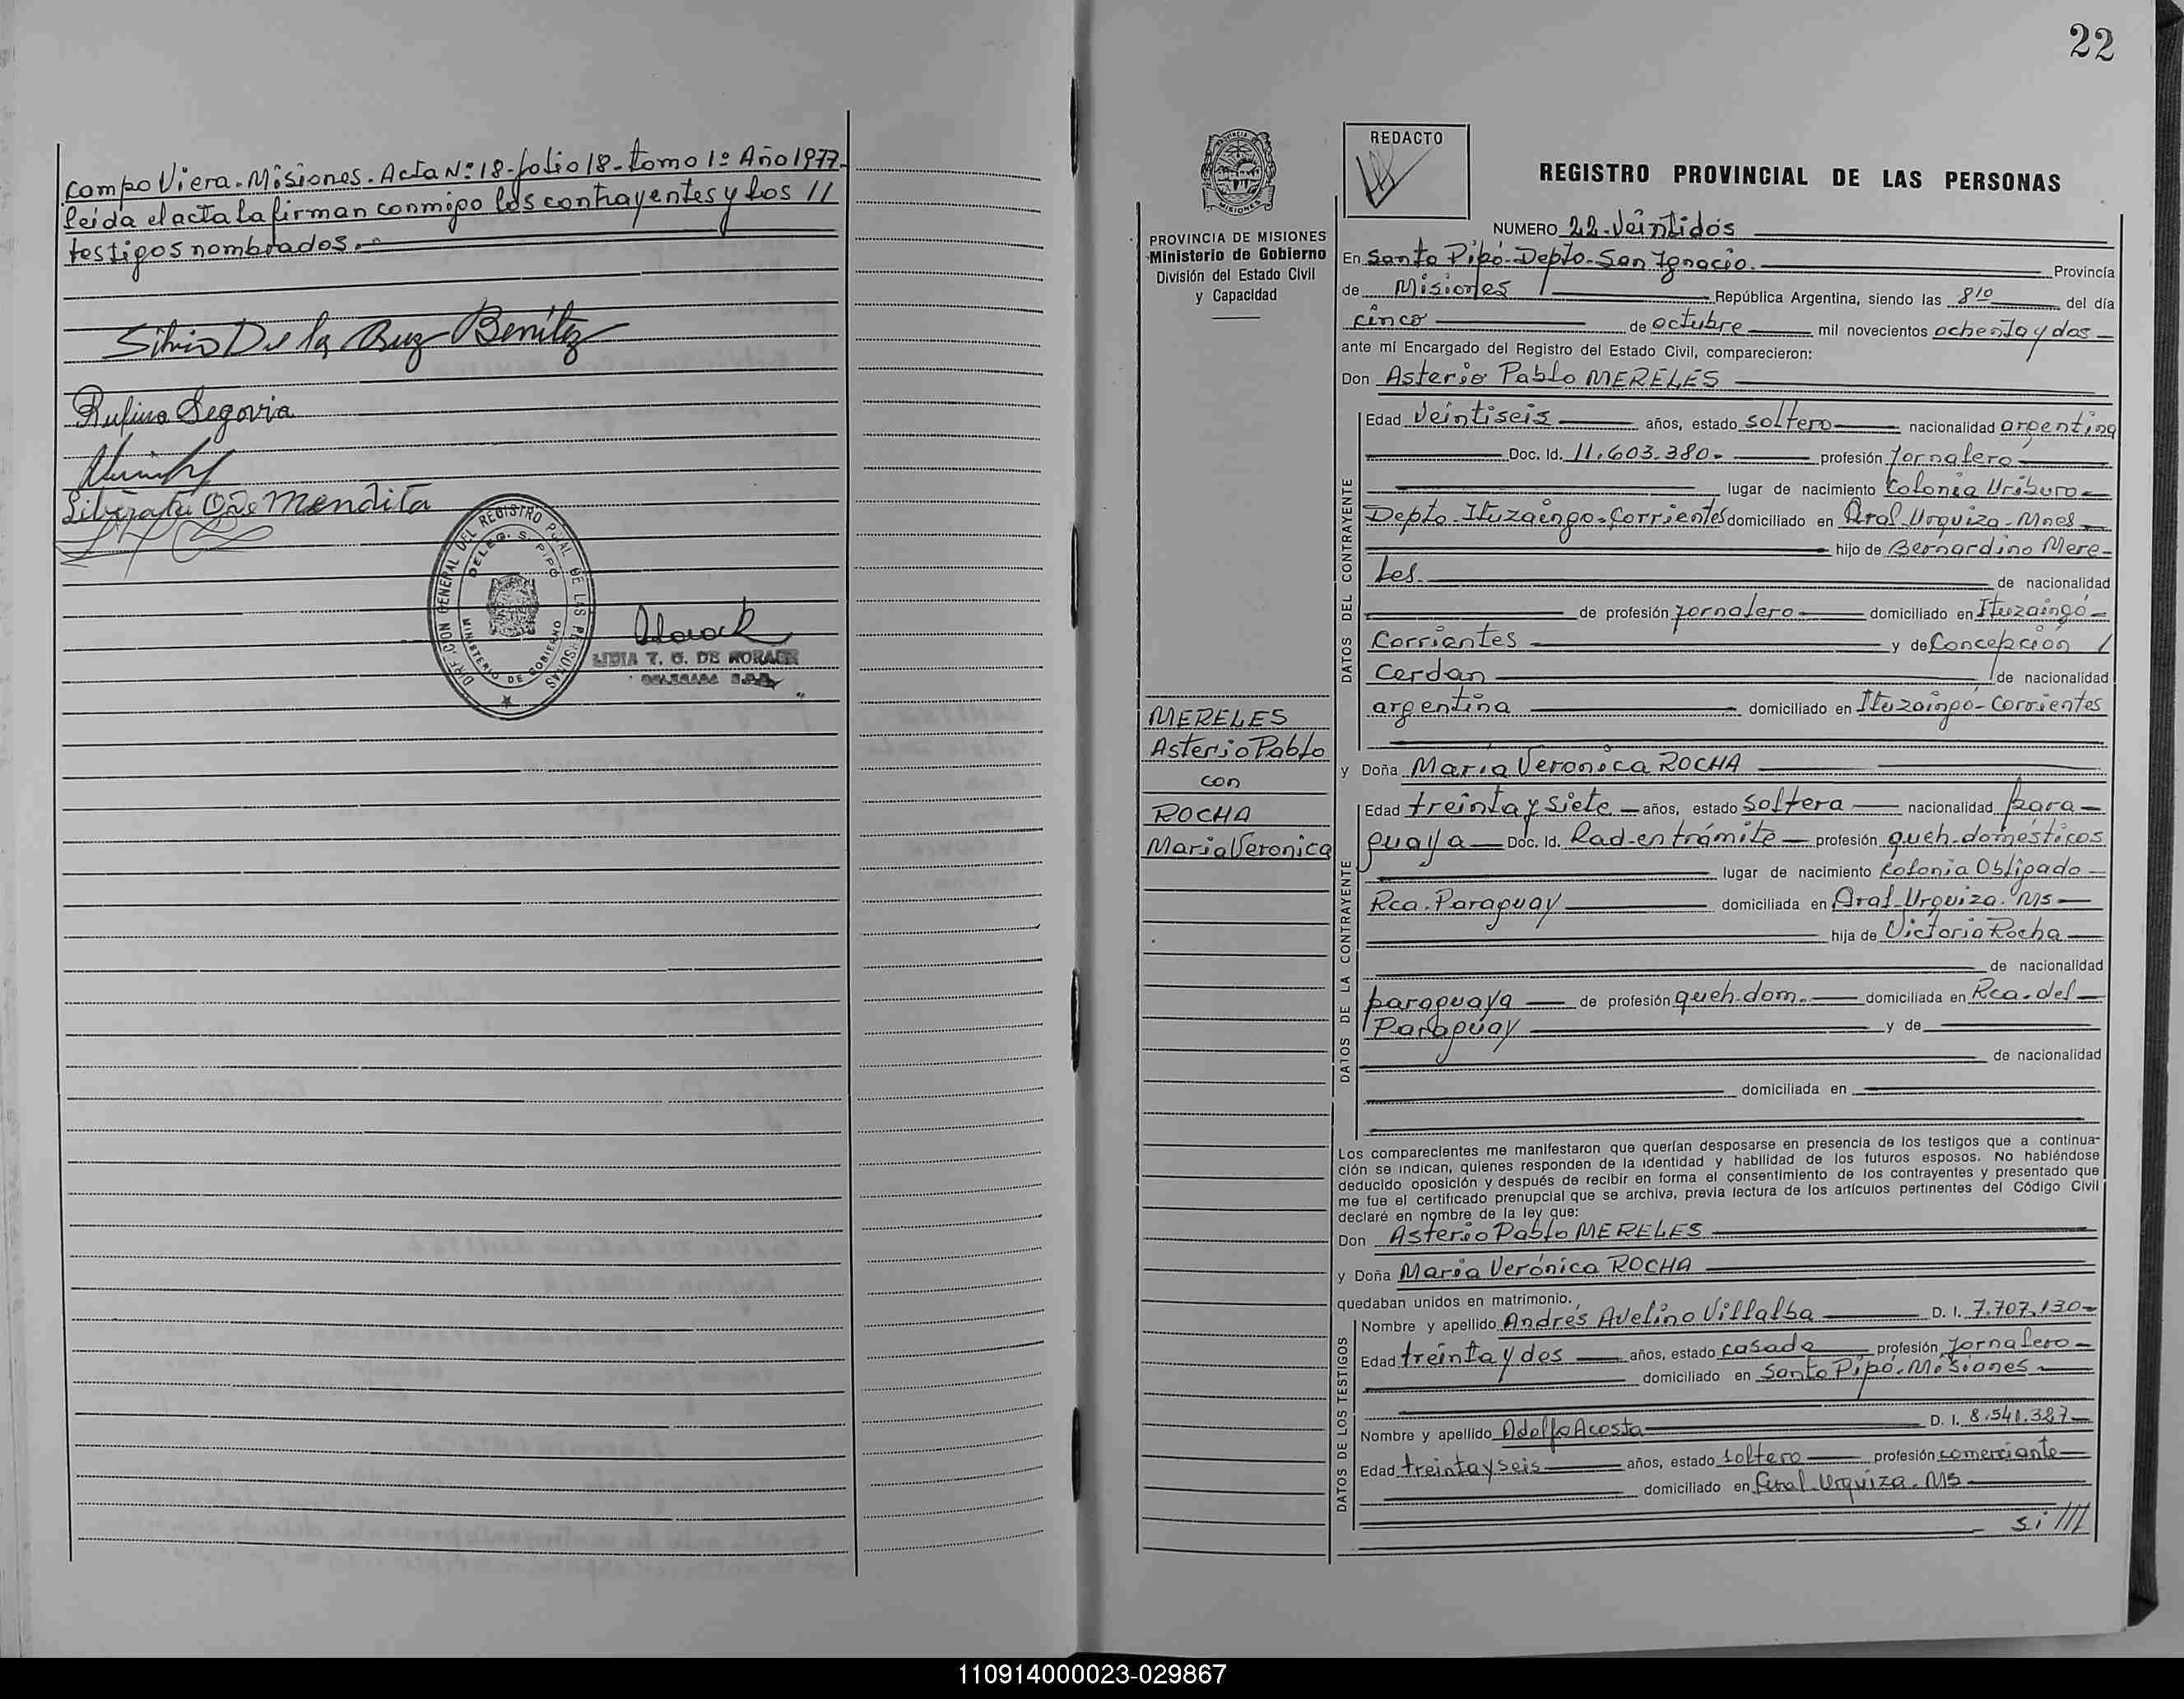 Campo Viera. Misiones. Acta Nº: 18-folio 18-tomo 1º Año 1977.
leída el acta la firman conmigo los contrayentes y los //
testigos nombrados.
Silvio De la Cruz Benítez
Rufina Segovia
Mendita
DIRECCION GENERAL DEL REGISTRO PCIAL DE LAS PERSONAS
DELEG. S. PIPO
MINISTERIO DE GOBIERNO
LIDIA T. G. DE
DELEGADA
22
REDACTO
REGISTRO PROVINCIAL DE LAS PERSONAS
PROVINCIA DE MISIONES
Ministerio de Gobierno
División del Estado Civil
y Capacidad
MERELES
Asterio Pablo
con
ROCHA
Maria Veronica
NUMERO 22-Veintidós
En Santo Pipó-Depto-San Ignacio. Provincia
de Misiones República Argentina, siendo las 8 10 del día
cinco de octubre mil novecientos ochenta y dos
ante mí Encargado del Registro del Estado Civil, comparecieron:
Don Asterio Pablo MERELES
DATOS DEL CONTRAYENTE
Edad Veintiseis años, estado soltero nacionalidad argentina
Doc. Id. 11.603.380- profesión Jornalero
lugar de nacimiento Colonia Uriburo
Depto-Ituzaingo-Corrientes domiciliado en Gral-Urquiza-Mnes
hijo de Bernardino Mere-
les. de nacionalidad
de profesión jornalero domiciliado en Ituzaingó
Corrientes y de Concepción /
Cerdan de nacionalidad
argentina domiciliado en Ituzaingó-Corrientes
y Doña María Veronica ROCHA
DATOS DE LA CONTRAYENTE
Edad treinta y siete años, estado Soltera nacionalidad para-
guaya Doc. Id. Rad-en trámite profesión queh-domésticos
lugar de nacimiento Colonia Obligado
Rca-Paraguay domiciliada en Gral-Urquiza. Ms
hija de Victoria Rocha
de nacionalidad
paraguaya de profesión queh-dom. domiciliada en Rca.del
Paraguay y de
de nacionalidad
domiciliada en
Los comparecientes me manifestaron que querían desposarse en presencia de los testigos que a continua-
ción se indican, quienes responden de la identidad y habilidad de los futuros esposos. No habiéndose
deducido oposición y después de recibir en forma el consentimiento de los contrayentes y presentado que
me fue el certificado prenupcial que se archiva, previa lectura de los artículos pertinentes del Código Civil
declaré en nombre de la ley que:
Don Asterio Pablo MERELES
y Doña María Verónica ROCHA
quedaban unidos en matrimonio.
DATOS DE LOS TESTIGOS
Nombre y apellido Andrés Avelino Villalba D. I. 7.707.130-
Edad treinta y dos años, estado casado profesión Jornalero
domiciliado en Santo Pipó. Misiones
Nombre y apellido Adolfo Acosta D. I. 8.541.327
Edad treinta y seis años, estado soltero profesión comerciante
domiciliado en Gral-Urquiza. Ms
si ///
110914000023-029867